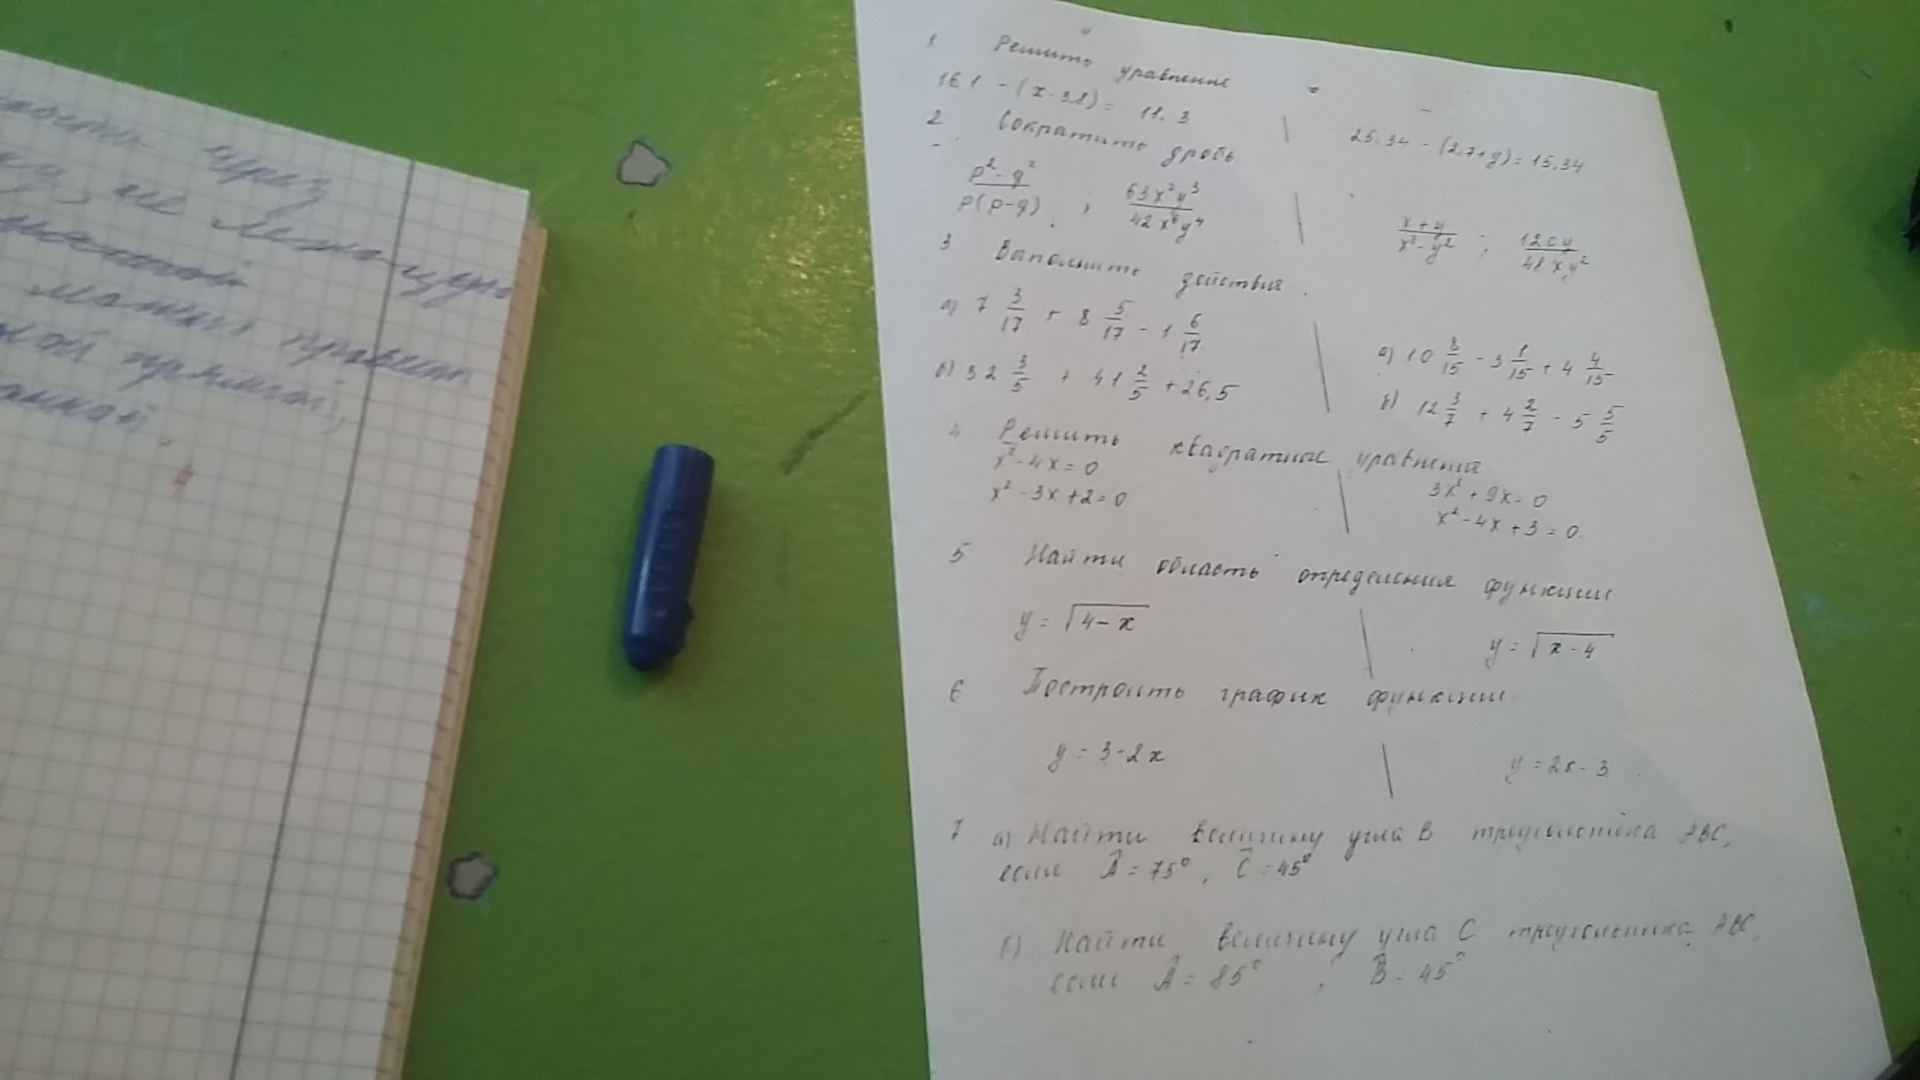 через
не
можно провести
прямой,
1 Решить уравнение
16,1 - (x-3,8) = 11,3 | 25,34 - (2,7+y) = 15,34
2 Сократить дробь.
p²-q² / p(p-q) ; 63x²y³ / 42x⁶y⁴ | x+y / x²-y² ; 12cy / 48xy²
3 Выполнить действия.
а) 7 3/17 + 8 5/17 - 1 6/17 | а) 10 8/15 - 3 1/15 + 4 4/15
б) 32 3/5 + 41 2/5 + 26,5 | б) 12 3/7 + 4 2/7 - 5 5/5
4 Решить квадратные уравнения
x²-4x=0 | 3x²+9x=0
x²-3x+2=0 | x²-4x+3=0.
5 Найти область определения функции
y = √4-x | y = √x-4
6 Построить график функции.
y = 3-2x | y = 2x-3
7 а) Найти величину угла B треугольника ABC,
если Â = 75°, Ĉ = 45°
б) Найти величину угла C треугольника ABC,
если Â = 85°, B̂ - 45°